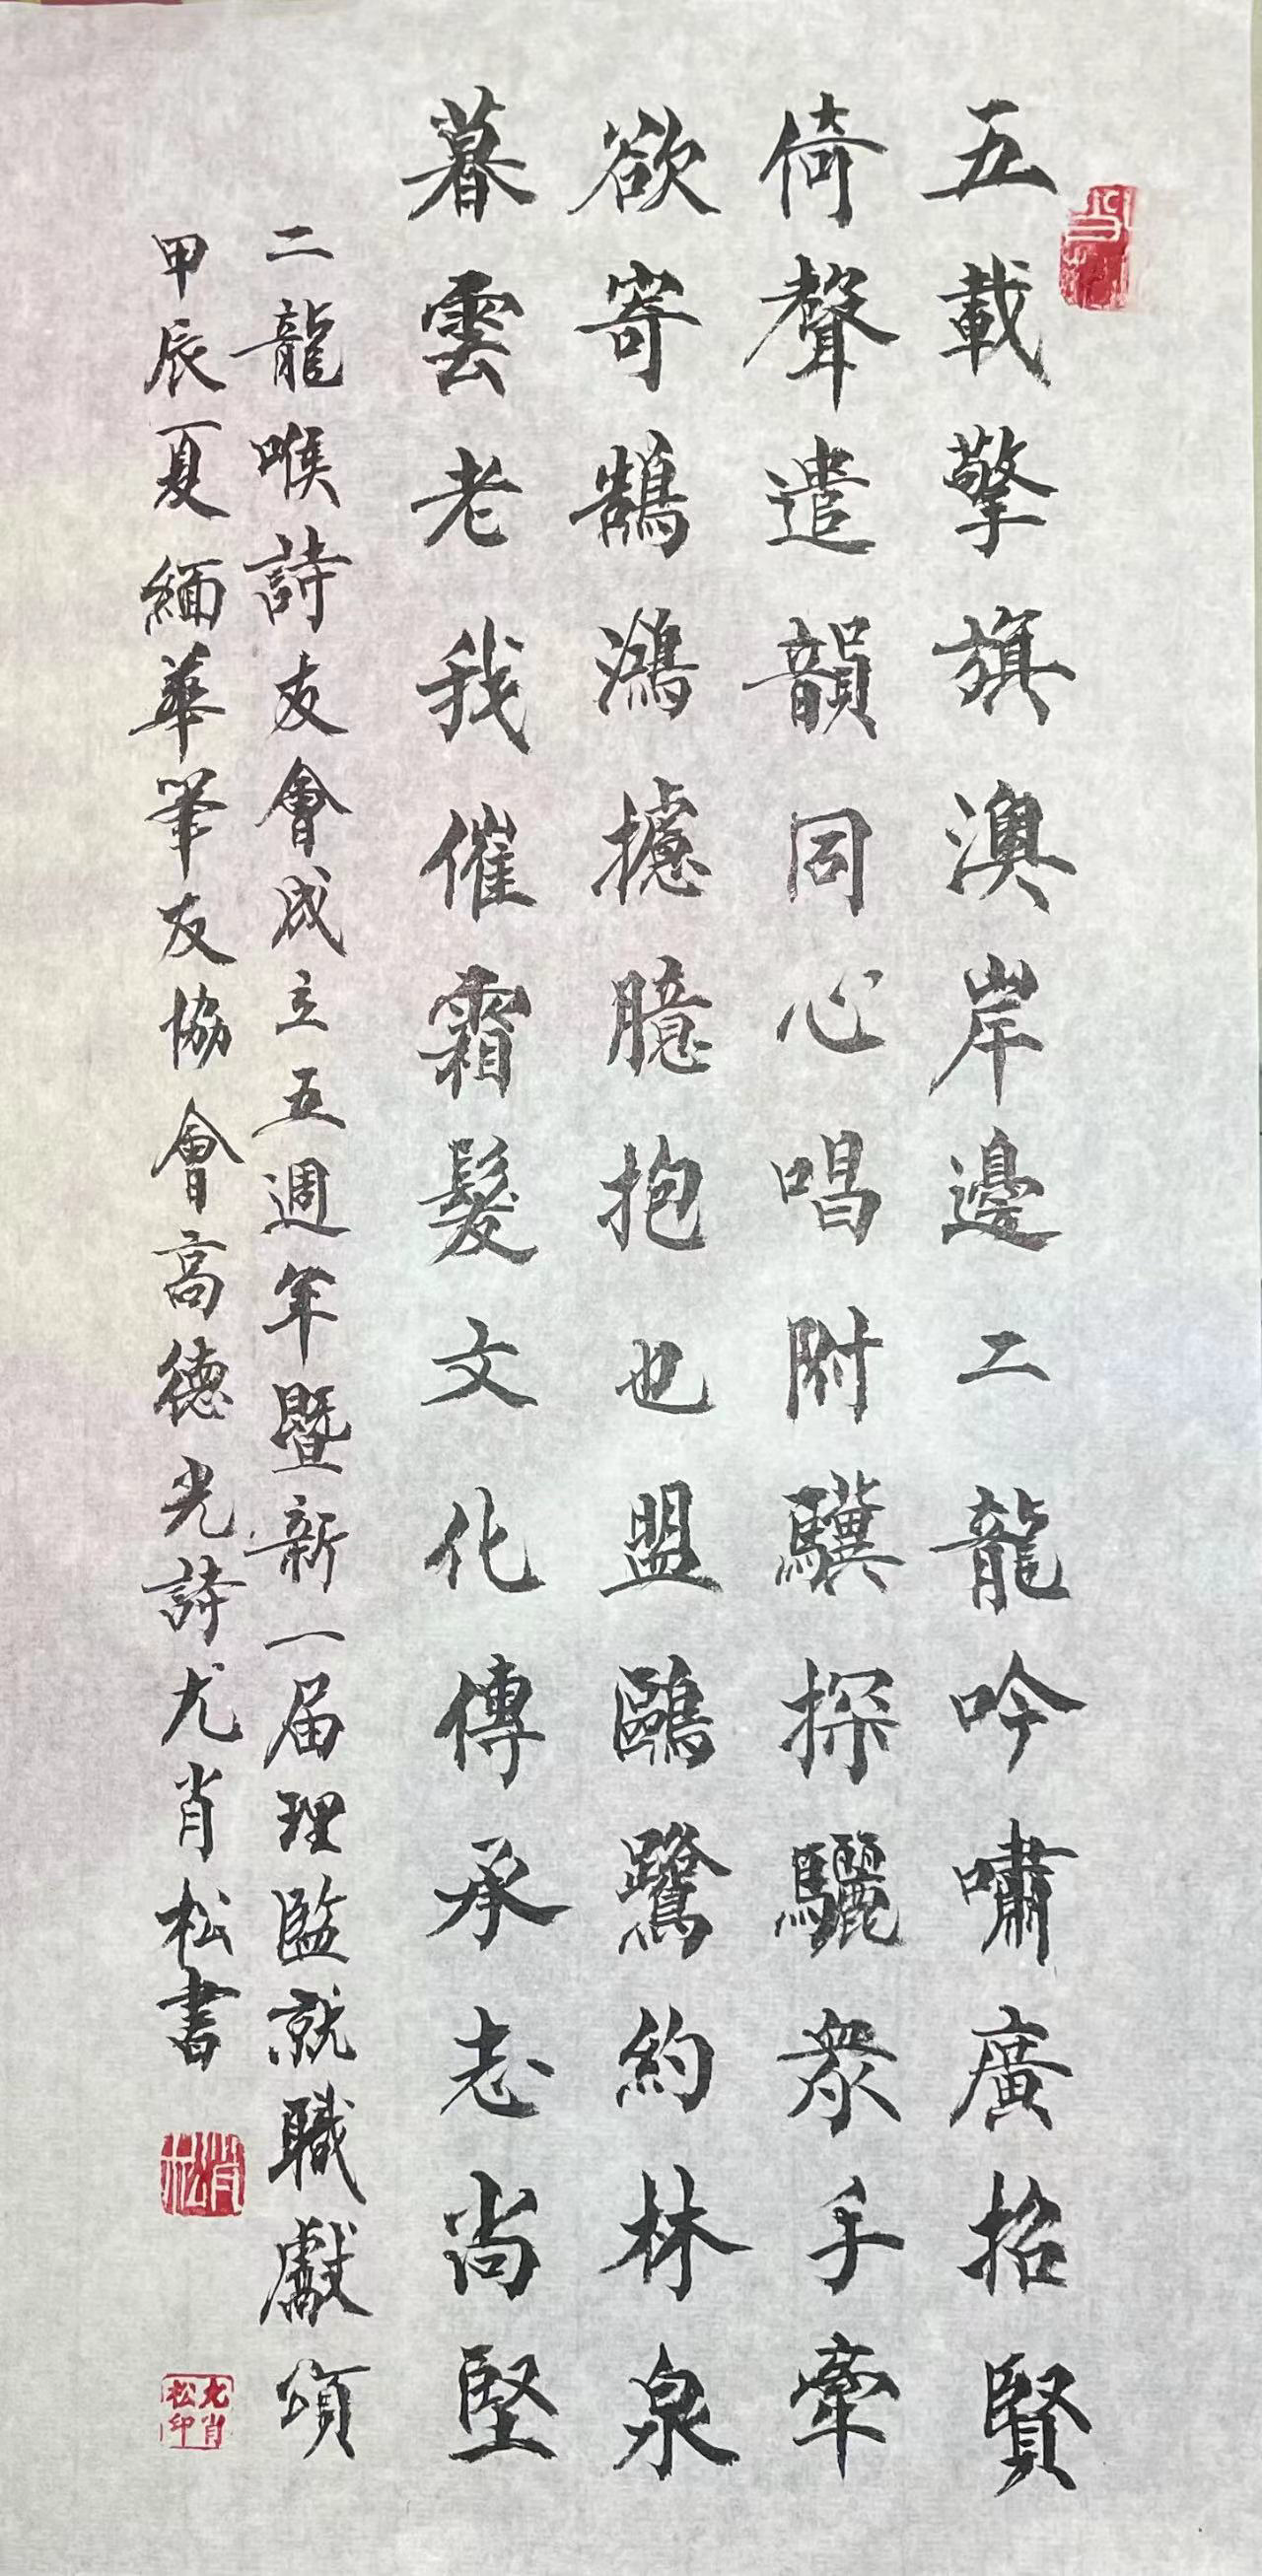 五載擎旗澳岸邊二龍吟嘯廣招賢
倚聲遣韻同心唱附驥探驪衆手牽
欲寄鵠鴻攄臆抱也盟鷗鷺約林泉
暮雲老我催霜髮文化傳承志尚堅
二龍喉詩友會成立五週年暨新一届理監就職獻頌
甲辰夏緬華筆友協會高德光詩尤肖松書
肖松
尤肖松印